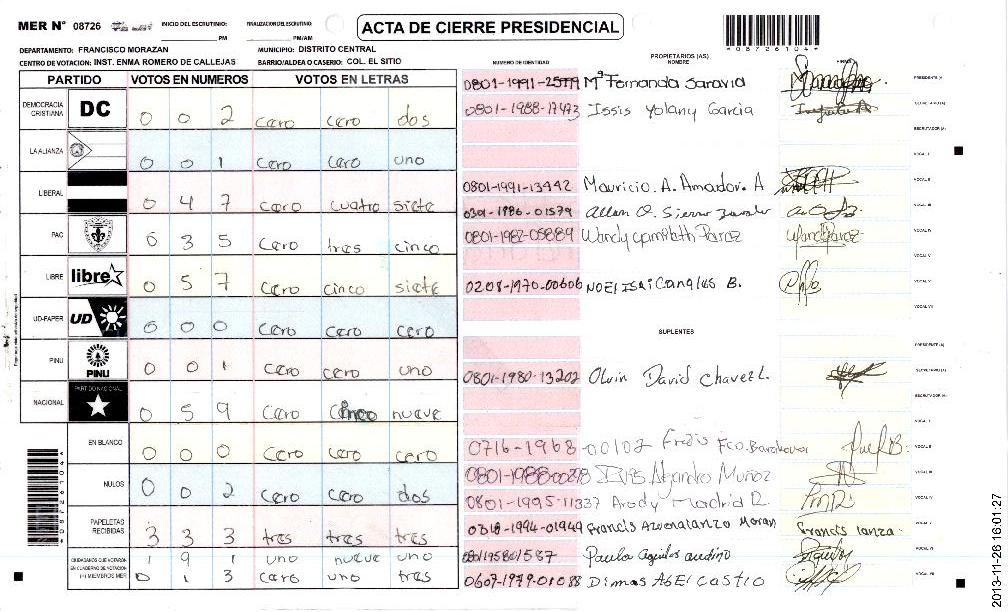 MER N° 08726 INICIO DEL ESCRUTINIO: PM FINALIZACION DEL ESCRUTINIO: PM/AM
ACTA DE CIERRE PRESIDENCIAL
*08726104*
DEPARTAMENTO: FRANCISCO MORAZAN MUNICIPIO: DISTRITO CENTRAL
CENTRO DE VOTACION: INST. ENMA ROMERO DE CALLEJAS BARRIO/ALDEA O CASERIO: COL. EL SITIO
NUMERO DE IDENTIDAD PROPIETARIOS (AS) NOMBRE FIRMA
PARTIDO VOTOS EN NUMEROS VOTOS EN LETRAS
DEMOCRACIA CRISTIANA DC 0 0 2 cero cero dos
LA ALIANZA 0 0 1 cero cero uno
LIBERAL 0 4 7 cero cuatro siete
PAC 0 3 5 cero tres cinco
LIBRE libre 0 5 7 cero cinco siete
UD-FAPER UD 0 0 0 cero cero cero
PINU PINU 0 0 1 cero cero uno
NACIONAL PARTIDO NACIONAL 0 5 9 cero cinco nueve
EN BLANCO 0 0 0 cero cero cero
NULOS 0 0 2 cero cero dos
PAPELETAS RECIBIDAS 3 3 3 tres tres tres
CIUDADANOS QUE VOTARON EN CUADERNO DE VOTACION 1 9 1 uno nueve uno
(+) MIEMBROS MER 0 1 3 cero uno tres
Mª Fernanda Saravia PRESIDENTE (A)
0801-1988-17473 Issis Yolany Garcia SECRETARIO (A)
ESCRUTADOR (A)
VOCAL I
0801-1991-13442 Mauricio. A. Amador. A VOCAL II
0301-1986-01579 Allan O. Sierra VOCAL III
0801-1982-05889 VOCAL IV
VOCAL V
0208-1970-00606 VOCAL VI
VOCAL VII
SUPLENTES
PRESIDENTE (A)
0801-1980-13202 Olvin David Chavez L. SECRETARIO (A)
ESCRUTADOR (A)
VOCAL I
0716-1968-00102 Fredis Fco. VOCAL II
Alejandro Muñoz VOCAL III
0801-1995-11337 Arody Madrid R. VOCAL IV
0318-1994-01949 Francis Moran VOCAL V
Paula VOCAL VI
0607-1979-01088 Dimas Abel Castio VOCAL VII
2013-11-28 16:01:27